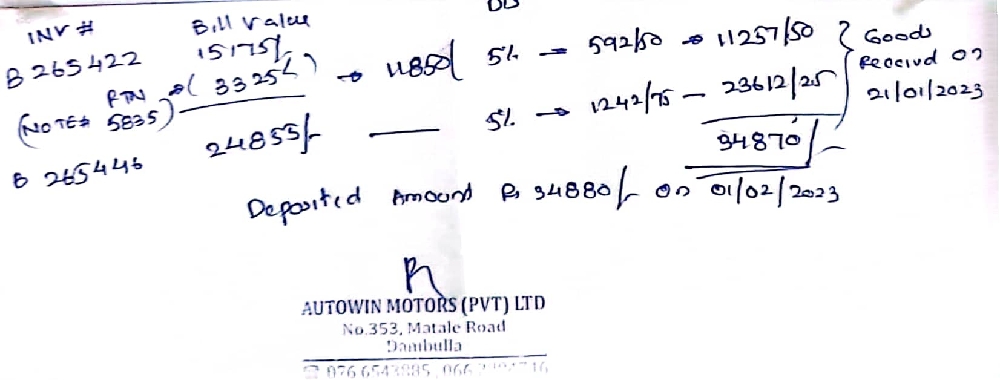 INV # Bill Value
B 265422 15175/- → 11850/- 5% → 592/50 → 11257/50 } Goods Receivd on 21/01/2023
(NOTE# RTN 5835) → (3325/-)
B 265446 24855/- — 5% → 1242/75 — 23612/25
34870/-
Deposited Amount Rs 34880/- on 01/02/2023
AUTOWIN MOTORS (PVT) LTD
No.353, Matale Road
Dambulla